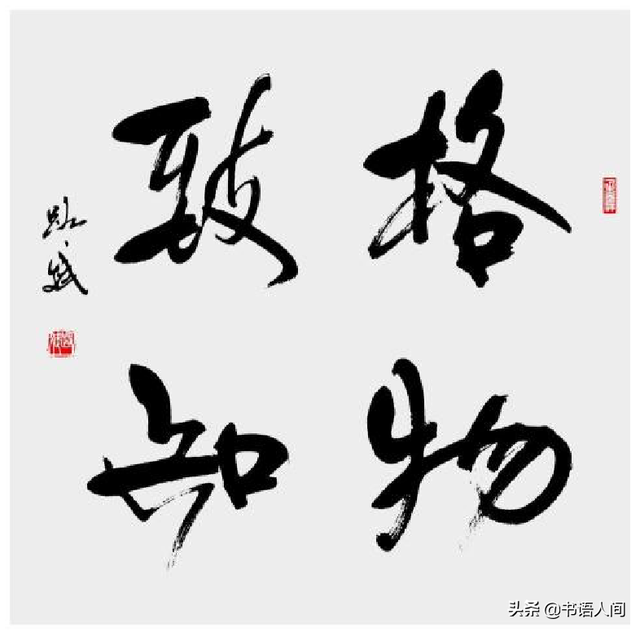 格物
致知
头条 @书语人间